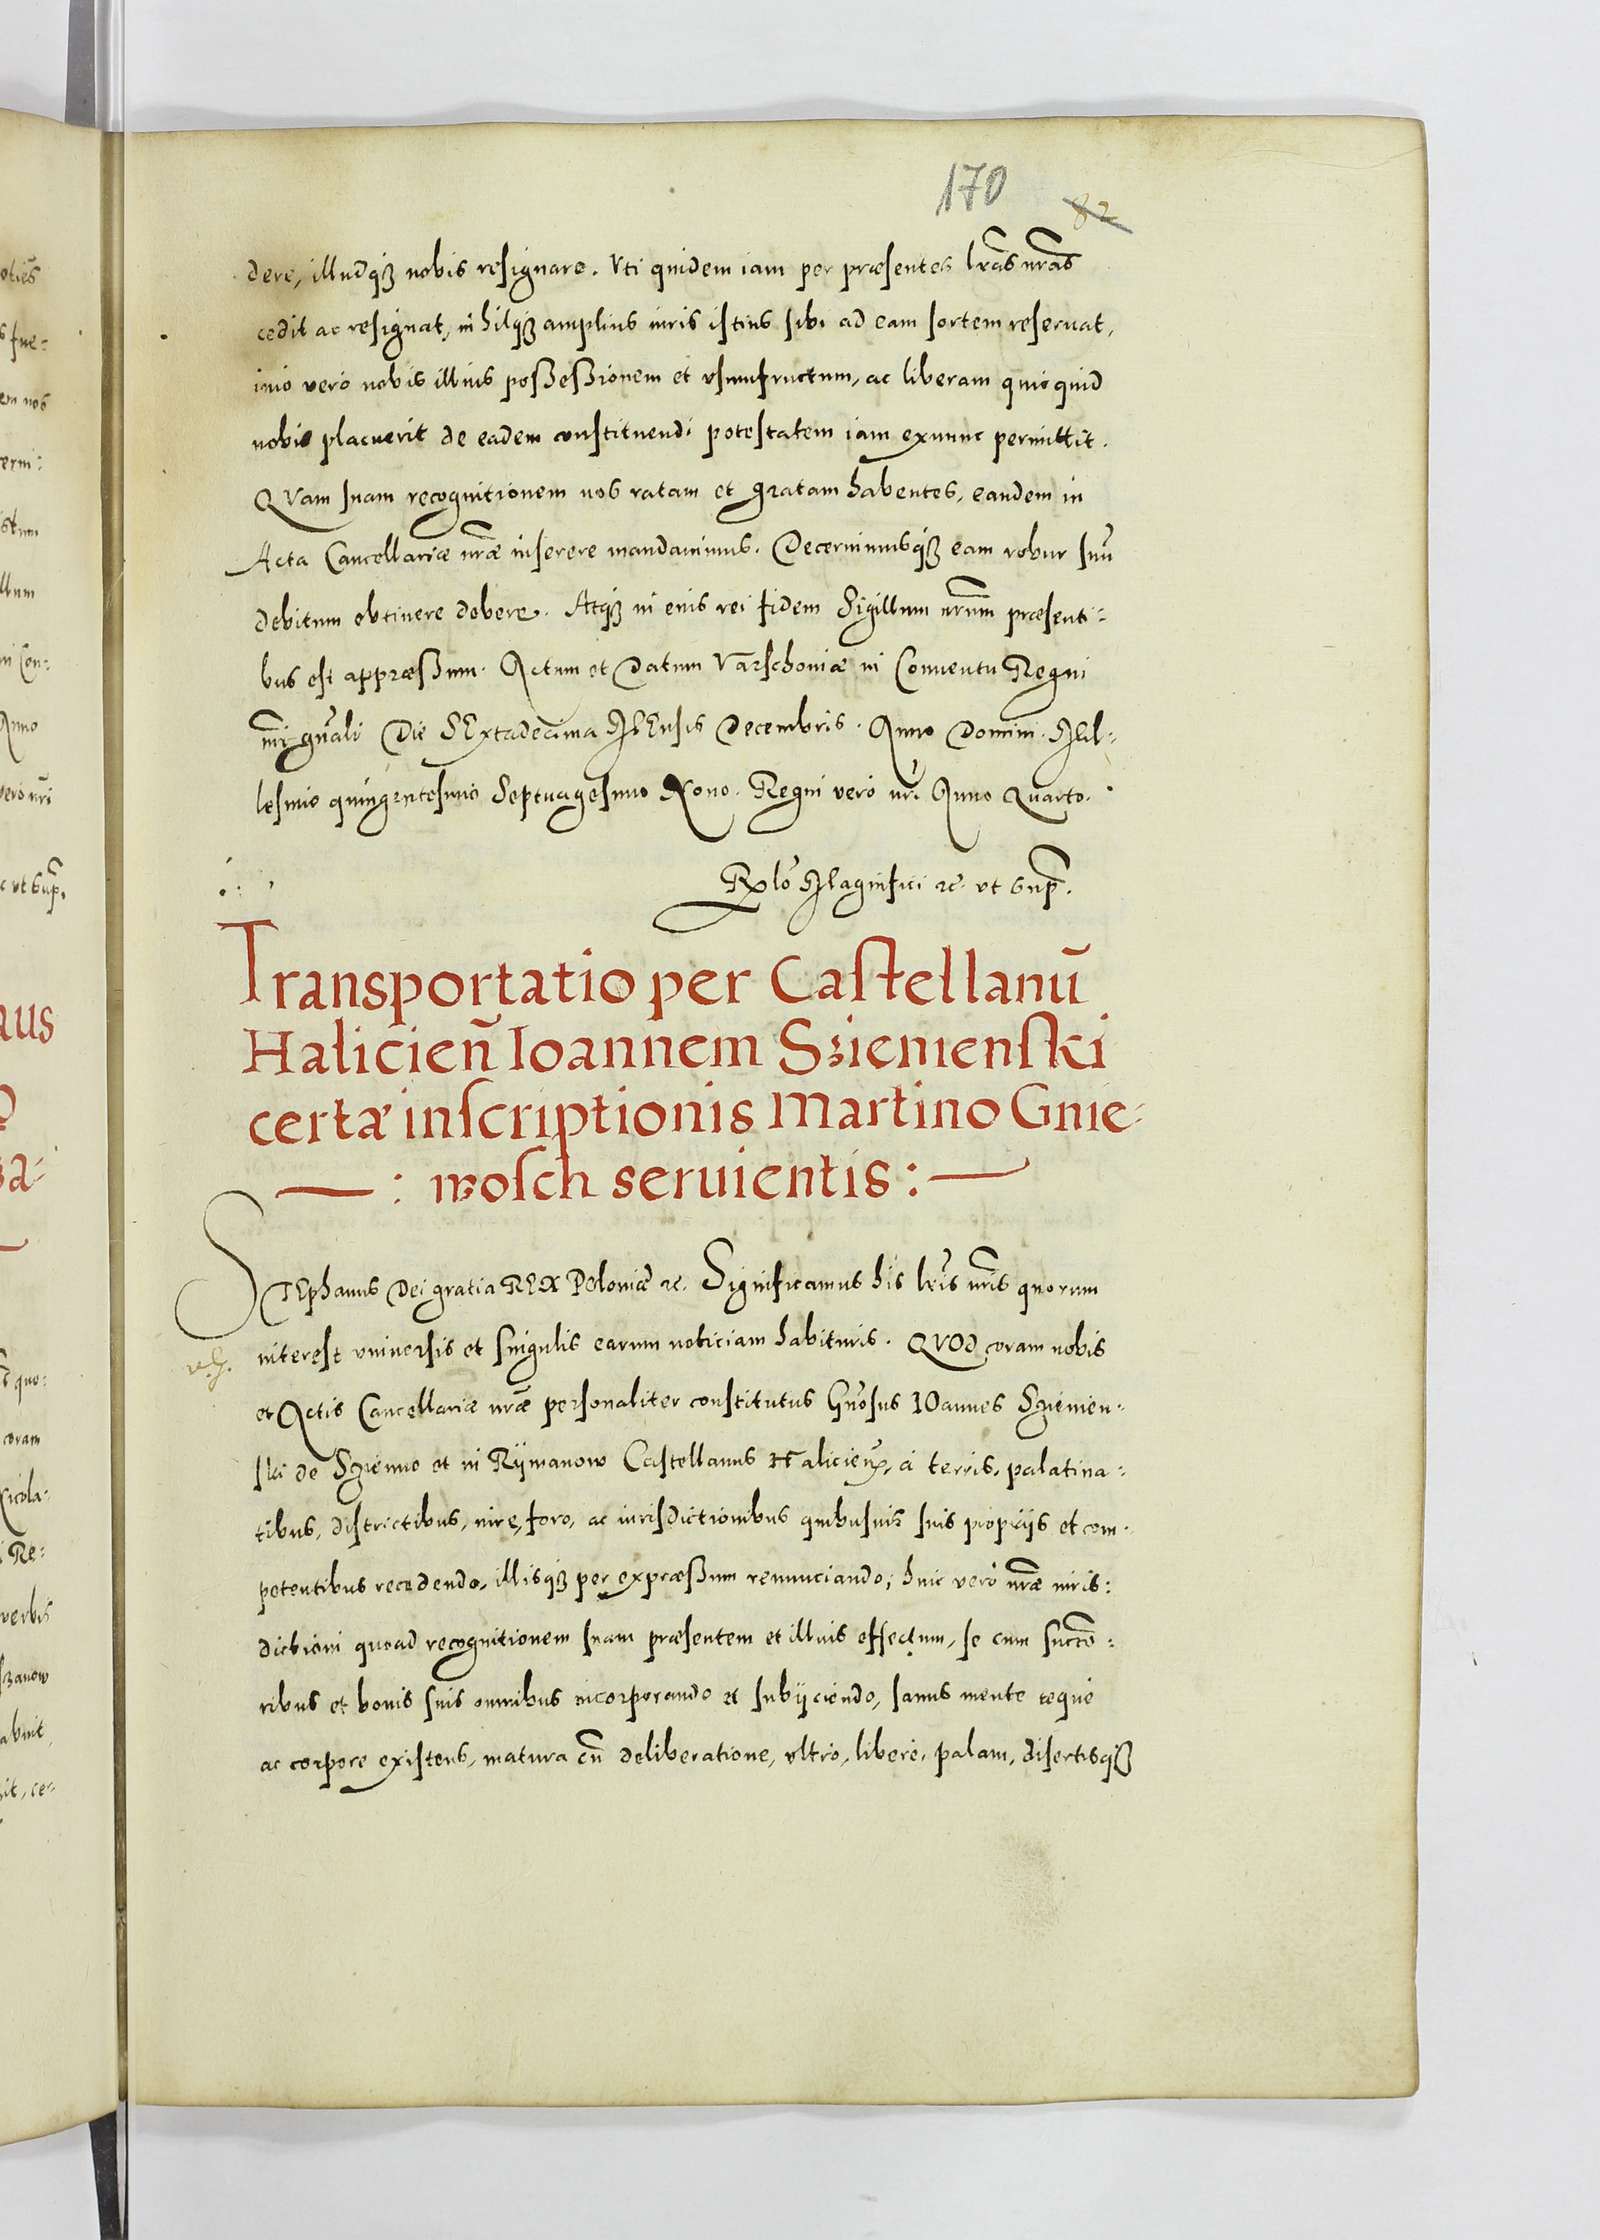 170
82
dere, illudq₃ nobis resignare. Vti quidem iam per præsentes lr̃as nr̃as
cedit ac resignat, nihilq₃ amplius iuris istius sibi ad eam sortem reseruat,
imo vero nobis illius possessionem et vsumfructum, ac liberam quicquid
nobis placuerit de eadem constituendi potestatem iam exnunc permittit.
QVam suam recognitionem nos ratam et gratam habentes, eandem in
Acta Cancellariæ nr̃æ inserere mandauimus. Decernimusq₃ eam robur suũ
debitum obtinere debere. Atq₃ in eius rei fidem Sigillum nr̃um præsenti-
bus est appræssum. Actum et Datum Varschoniæ in Conuentu Regni
nr̃i gnãli Die SExtadecima MEnsis Decembris. Anno Domini. Mil-
lesimo quingentesimo Septuagesimo Nono. Regni vero nr̃i Anno Quarto.
Rẽlo Magnifici ꝛc̃. vt sup̃.
Transportatio per Castellanũ
Halicieñ Ioannem Szienienski
certæ inscriptionis Martino Gnie-
: wosch seruientis :
STEphanus Dei gratia REX Poloniæ ꝛc. Significamus his lr̃is nr̃is quorum
interest vniuersis et singulis earum noticiam habituris. QVOd coram nobis
et Actis Cancellariæ nr̃æ personaliter constitutus Gñosus IOannes Szienien-
ski de Szienno et in Rÿmanow Castellanus Halicieñ, á terris, palatina-
tibus, districtibus, iure, foro, ac iurisdictionibus quibusuis suis proprijs et com-
petentibus recedendo, illisq₃ per expræssum renunciando; huic vero nr̃æ iuris-
dictioni quoad recognitionem suam præsentem et illius effectum, se cum succõ-
ribus et bonis suis omnibus incorporando et subijciendo, sanus mente æque
ac corpore existens, matura cũ deliberatione, vltro, libere, palam, disertisq₃